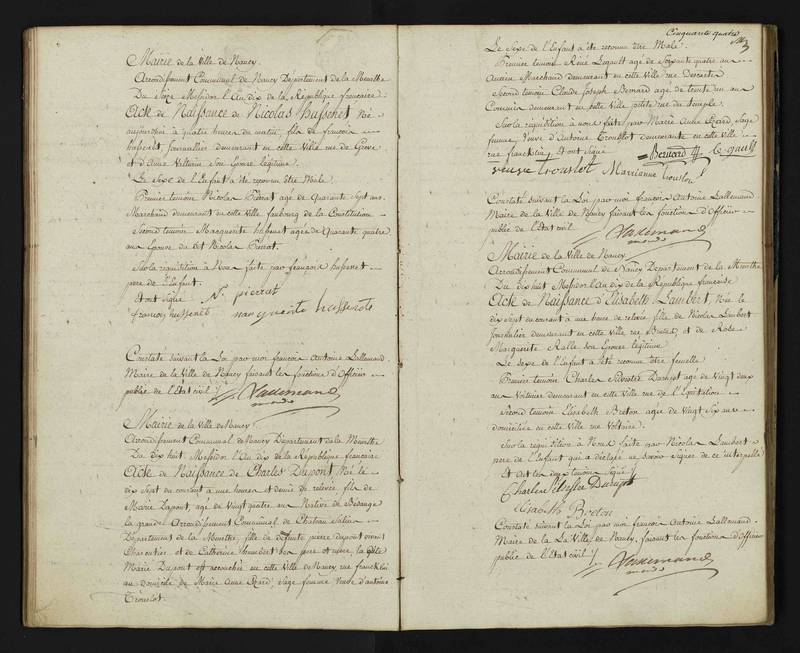 Mairie de la Ville de Nancy.
Arrondissement Communal de Nancy Département de la Meurthe
Du Seize Messidor l'An dix de la République française.
Acte de Naissance de Nicolas hussenet Né
aujourdhui à quatre heures du matin, fils de françois
hussenet, Journallier demeurant en cette Ville rue de Grève
et d'Anne Son Epouse légitime.
Le Sexe de l'Enfant a été reconnu être Mâle.
Premier témoin Nicolas Pierrat agé de Quarante Sept ans
Marchand demeurant en cette Ville faubourg de la Constitution
Second témoin Marguerite hussenet agée de Quarante quatre
ans Epouse du dit Nicolas Pierrat.
Sur la réquisition à Nous faite par françois hussenet
pere de l'Enfant.
Et ont Signé N. pierrat
francois hussenet marguerite hussenete
Constaté suivant la Loi par moi françois Antoine Lallemand
Maire de la Ville de Nancy faisant les fonctions d'Officier
public de l'Etat civil Lallemand
Mairie de la Ville de Nancy
Arrondissement Communal de Nancy Département de la Meurthe
Du dix huit Messidor l'An dix de la République française
Acte de Naissance de Charles Dupont Né le
dix Sept du courant à une heure et demie de relevée, fils de
Marie Dupont, agé de Vingt quatre ans Native de Bédange
la grande Arrondissement Communal de Château Salins
Département de la Meurthe, fille de défunts pierre dupont vivant
Charcutier et de Catherine humbert Ses pere et mere, la dite
Marie Dupont est accouchée en cette Ville de Nancy rue francklin
au domicile de Marie Anne Erard, Sage femme Veuve d'antoine
Trouslot.
Cinquante quatre
Le Sexe de l'Enfant a été reconnu être Mâle.
Premier témoin René Legault agé de Soixante quatre ans
Ancien Marchand demeurant en cette Ville rue Descartes
Second témoin Claude Joseph Bernard agé de trente un ans
Commis demeurant en cette Ville petite rue du Temple.
Sur la réquisition à nous faite par Marie Anne Erard Sage
femme, Veuve d'Antoine Trouslot demeurante en cette Ville
rue francklin, Et ont Signé Bernard le gault
veuve trouslot Marrianne Trouslot
Constaté suivant la Loi par moi françois Antoine Lallemand
Maire de la Ville de Nancy faisant les fonctions d'Officier
public de l'Etat civil Lallemand
Mairie de la Ville de Nancy
Arrondissement Communal de Nancy Département de la Meurthe
Du dix huit Messidor l'An dix de la République française
Acte de Naissance d'Elisabeth Lambert, Née le
dix Sept du courant à une heure de relevée, fille de Nicolas Lambert
Journallier demeurant en cette Ville rue Brutus, et de Rose
Marguerite Ralle Son Epouse légitime
Le Sexe de l'Enfant a été reconnu être femelle
Premier témoin Charles Silvestre agé de Vingt deux
ans Voiturier demeurant en cette Ville rue de l'Equitation
Second témoin Elisabeth Breton agée de Vingt Six ans
domiciliée en cette Ville rue Voltaire.
Sur la réquisition à Nous faite par Nicolas Lambert
pere de l'Enfant qui a déclaré ne Savoir Signer de ce interpellé
Et ont les deux témoins Signé
Charles Silvestre
Elisabeth Breton
Constaté suivant la Loi par moi françois Antoine Lallemand
Maire de la Ville de Nancy, faisant les fonctions d'Officier
public de l'Etat civil Lallemand